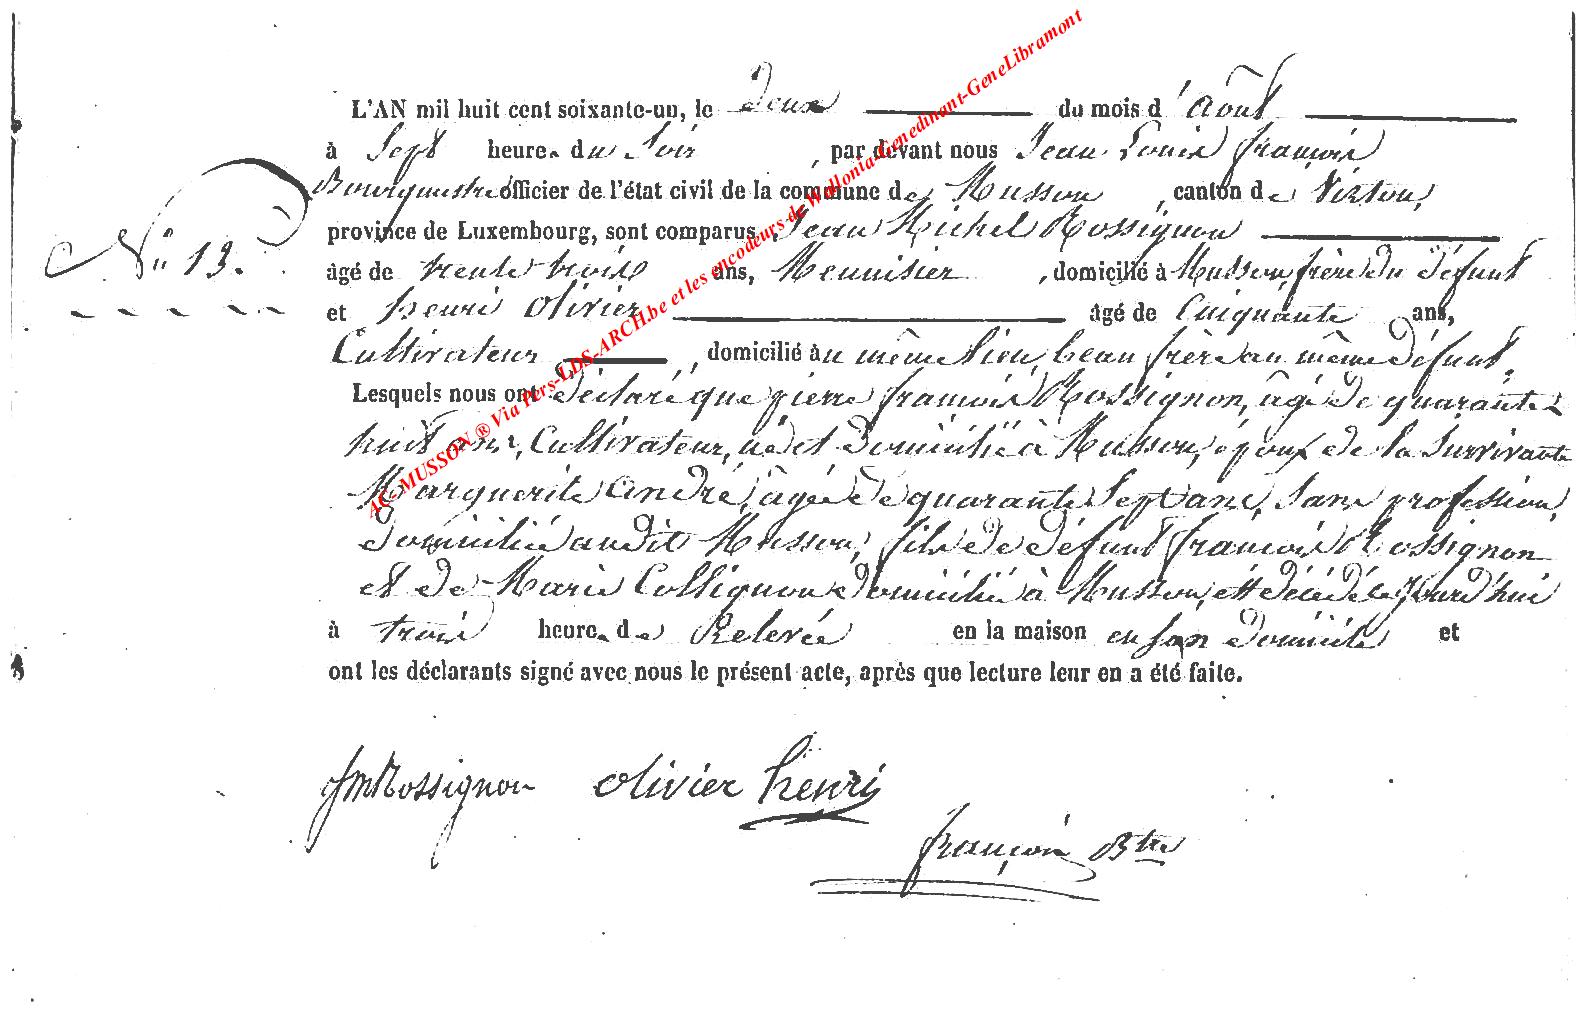 L'AN mil huit cent soixante-un, le deux du mois d'août
à Sept heures du Soir, par devant nous Jean Louis françois
Bourguestre officier de l'état civil de la commune de Musson, canton de Virton,
province de Luxembourg, sont comparus Jean Michel Rossignon
N° 13.
âgé de trente trois ans, Menuisier, domicilié à Musson, frère du défunt
et henri olivier âgé de Cinquante ans,
Cultivateur, domicilié au même lieu, beau frère au même défunt.
Lesquels nous ont déclaré que pierre françois Rossignon, âgé de quarante
huit ans, Cultivateur, né et domicilié à Musson, époux de la Survivante
Marguerite André, âgée de quarante Sept ans, sans profession,
domiciliée audit Musson, fils de défunt françois Rossignon
et de Marie Collignon domiciliée à Musson, est décédé cejourd'hui
à trois heures de Relevée en la maison en son domicile et
ont les déclarants signé avec nous le présent acte, après que lecture leur en a été faite.
JMRossignon olivier henri
françois Btre
AC-MUSSON ® Via Pers-LDS-ARCH.be et les encodeurs de Wallonia-Genedinant-GeneLibramont